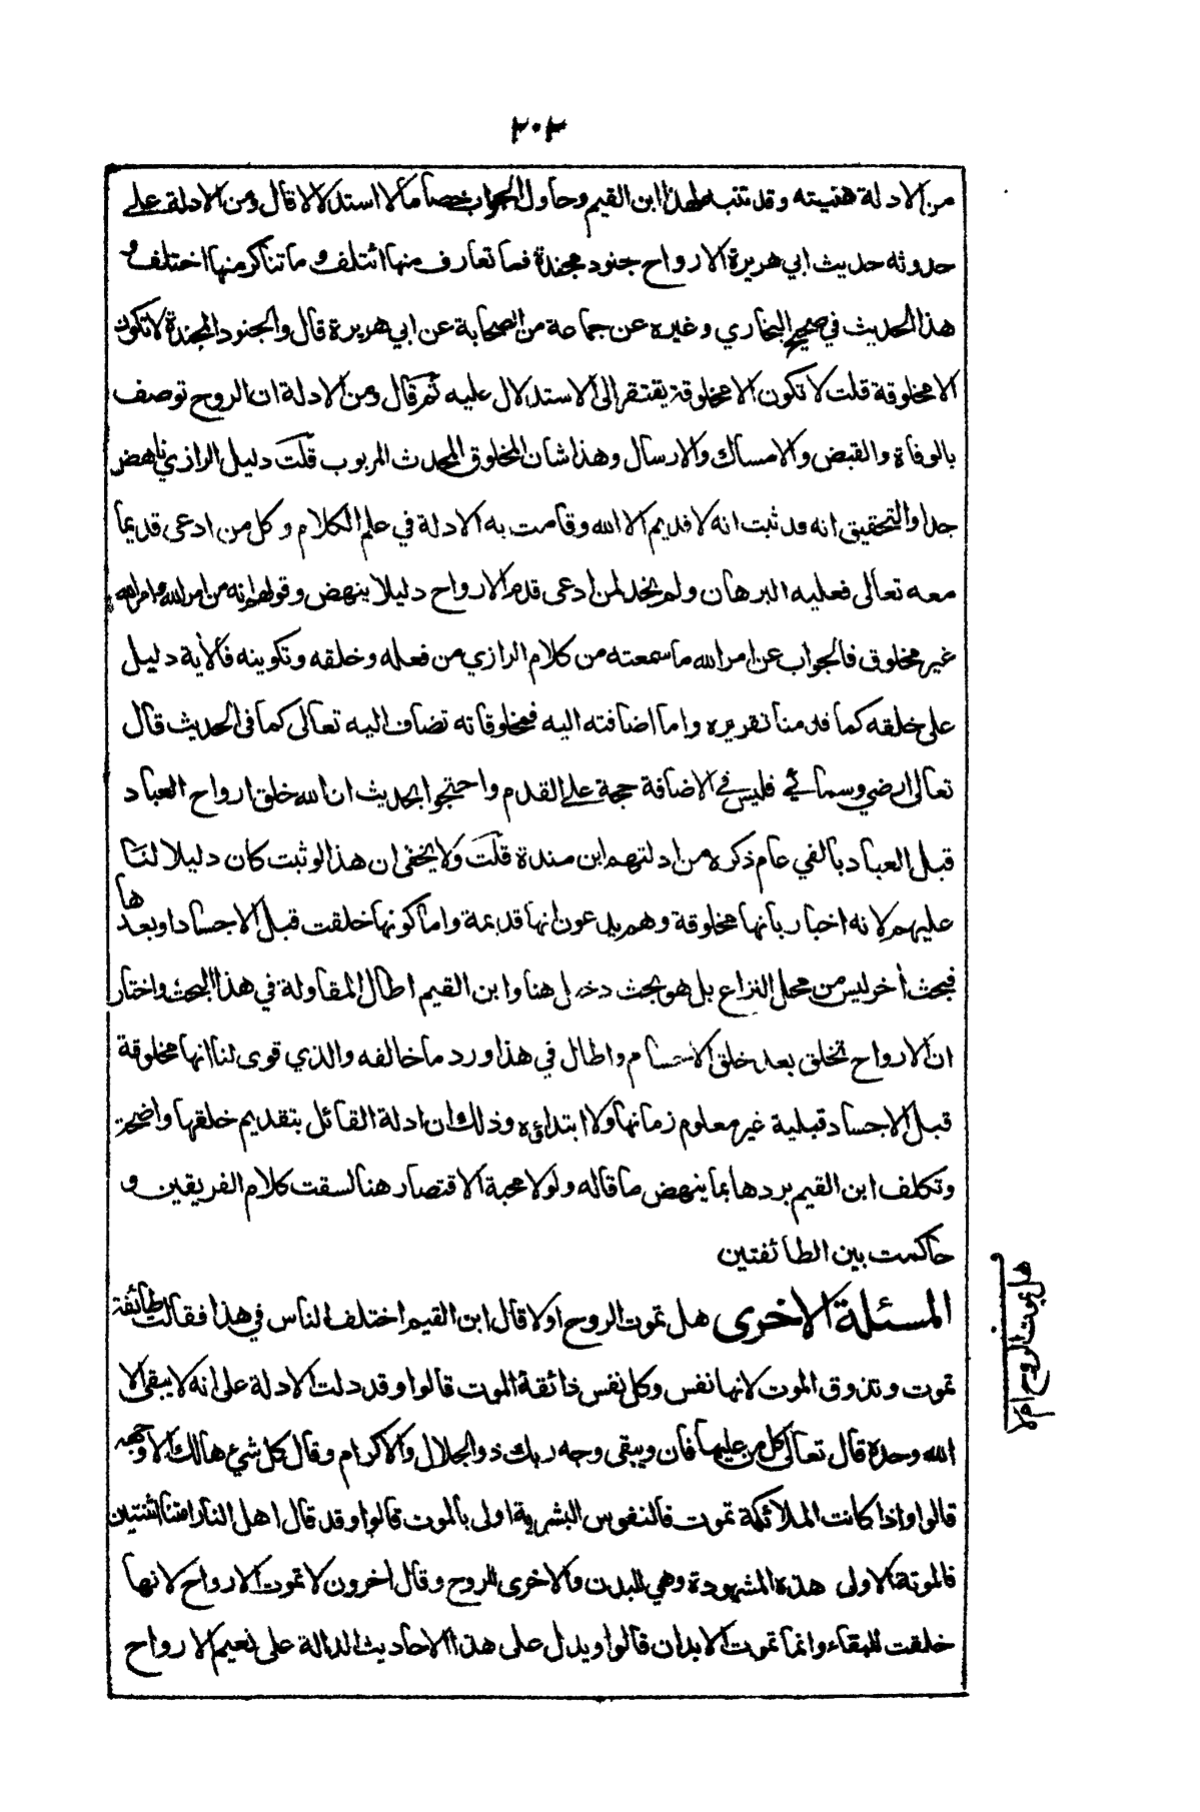 ٢٠٣
من الادلة هنيته وقد تنبه لهذا ابن القيم وحاول الجواب ما الاستدلالا قال ومن الادلة على
حدوثه حديث ابي هريرة الارواح جنود مجندة فما تعارف منها ائتلف وما تناكر منها اختلف و
هذا الحديث في صحيح البخاري وغيره عن جماعة من الصحابة عن ابي هريرة قال والجنود المجندة لا تكون
الا مخلوقة قلت لا تكون الا مخلوقة يفتقر الى الاستدلال عليه ثم قال ومن الادلة ان الروح توصف
بالوفاة والقبض والامساك والارسال وهذا شان المخلوق المحدث المربوب قلت دليل الرازي ناهض
جدا والتحقيق انه قد ثبت انه لا قديم الا الله وقامت به الادلة في علم الكلام وكل من ادعى قديما
معه تعالى فعليه البرهان ولم يخد لمن ادعى قدم الارواح دليلا ينهض وقولهم انه من امر الله وامر الله
غير مخلوق فالجواب عن امر الله ما سمعته من كلام الرازي من فعله وخلقه وتكوينه فالأية دليل
على خلقه كما قدمنا تقريره واما اضافته اليه فمخلوقاته تضاف اليه تعالى كما في الحديث قال
تعالى ارضي وسمائي فليس في الاضافة حجة على القدم واحتجوا بحديث ان الله خلق ارواح العباد
قبل العباد بالفي عام ذكره من ادلتهم ابن مندة قلت ولا يخفى ان هذا لو ثبت كان دليلا لنا
عليهم لانه اخبار بانها مخلوقة وهم يدعون انها قديمة واما كونها خلقت قبل الاجساد او بعدها
فبحث أخر ليس من محل النزاع بل هو بحث دخيل هنا وابن القيم اطال المقاولة في هذا البحث واختار
ان الارواح تخلق بعد خلق الاجسام واطال في هذا ورد ما خالفه والذي قوى لنا انها مخلوقة
قبل الاجساد قبلية غير معلوم زمانها ولا ابتدائه وذلك ان ادلة القائل بتقديم خلقها واضحة
وتكلف ابن القيم بردها بما ينهض ما قاله ولولا محبة الاقتصار هنا لسقت كلام الفريقين و
حاكمت بين الطائفتين
المسئلة الاخرى هل تموت الروح او لا قال ابن القيم اختلف الناس في هذا فقالت طائفة
تموت وتذوق الموت لانها نفس وكل نفس ذائقة الموت قالوا وقد دلت الادلة على انه لا يبقى الا
الله وحده قال تعالى كل من عليها فان ويبقى وجه ربك ذو الجلال والاكرام وقال كل شيء هالك الا وجهه
قالوا واذا كانت الملائكة تموت فالنفوس البشرية اولى بالموت قالوا وقد قال اهل النار امتنا اثنتين
فالموتة الاولى هذه المشهودة وهي للبدن والاخرى للروح وقال اخرون لا تموت الارواح لانها
خلقت للبقاء وانما تموت الابدان قالوا ويدل على هذا الاحاديث الدالة على نعيم الارواح
هل تموت الروح ام لا